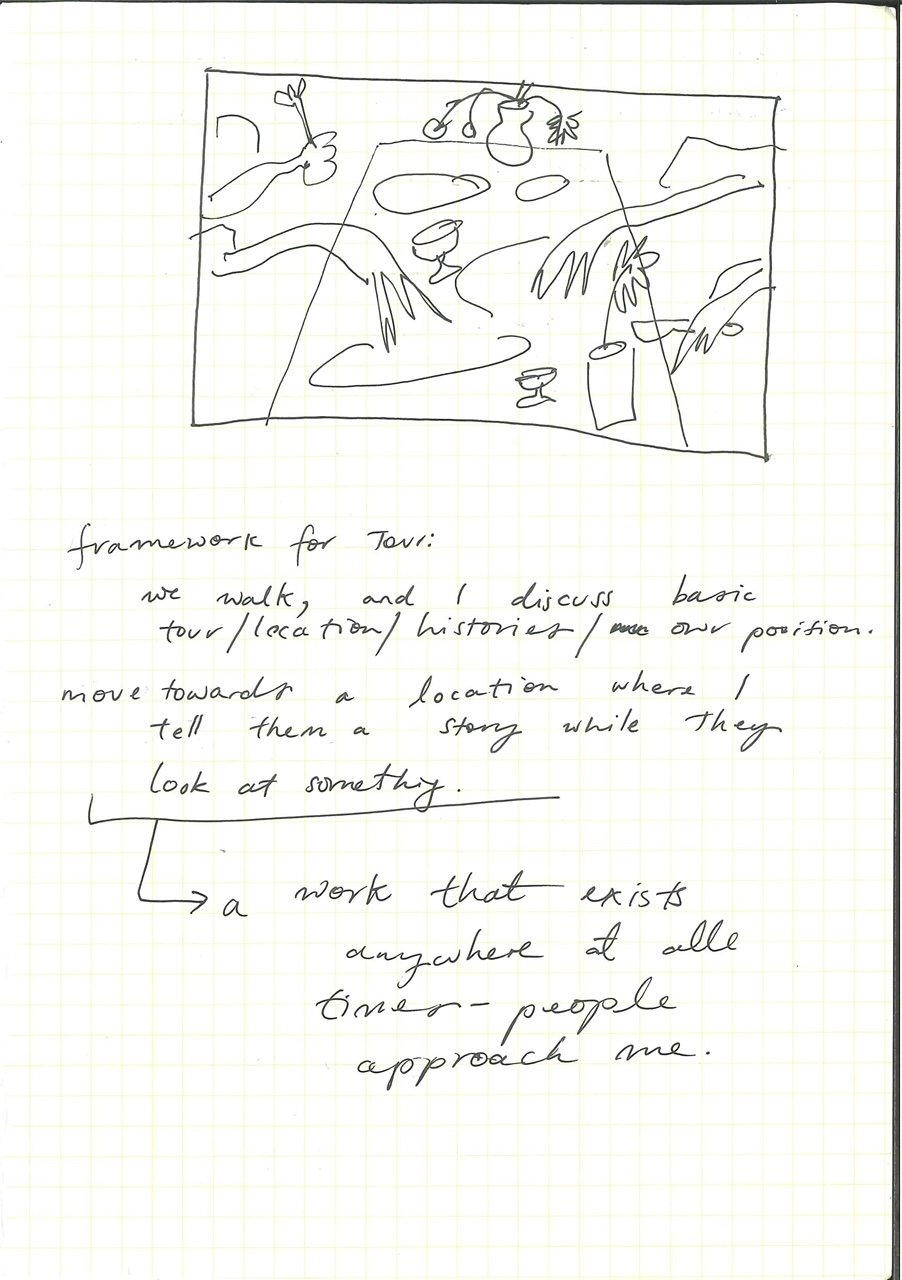 framework for Tour:
we walk, and I discuss basic
tour/location/histories/ our position.
move towards a location where I
tell them a story while they
look at somethig.
a work that exists
anywhere at alle
times- people
approach me.